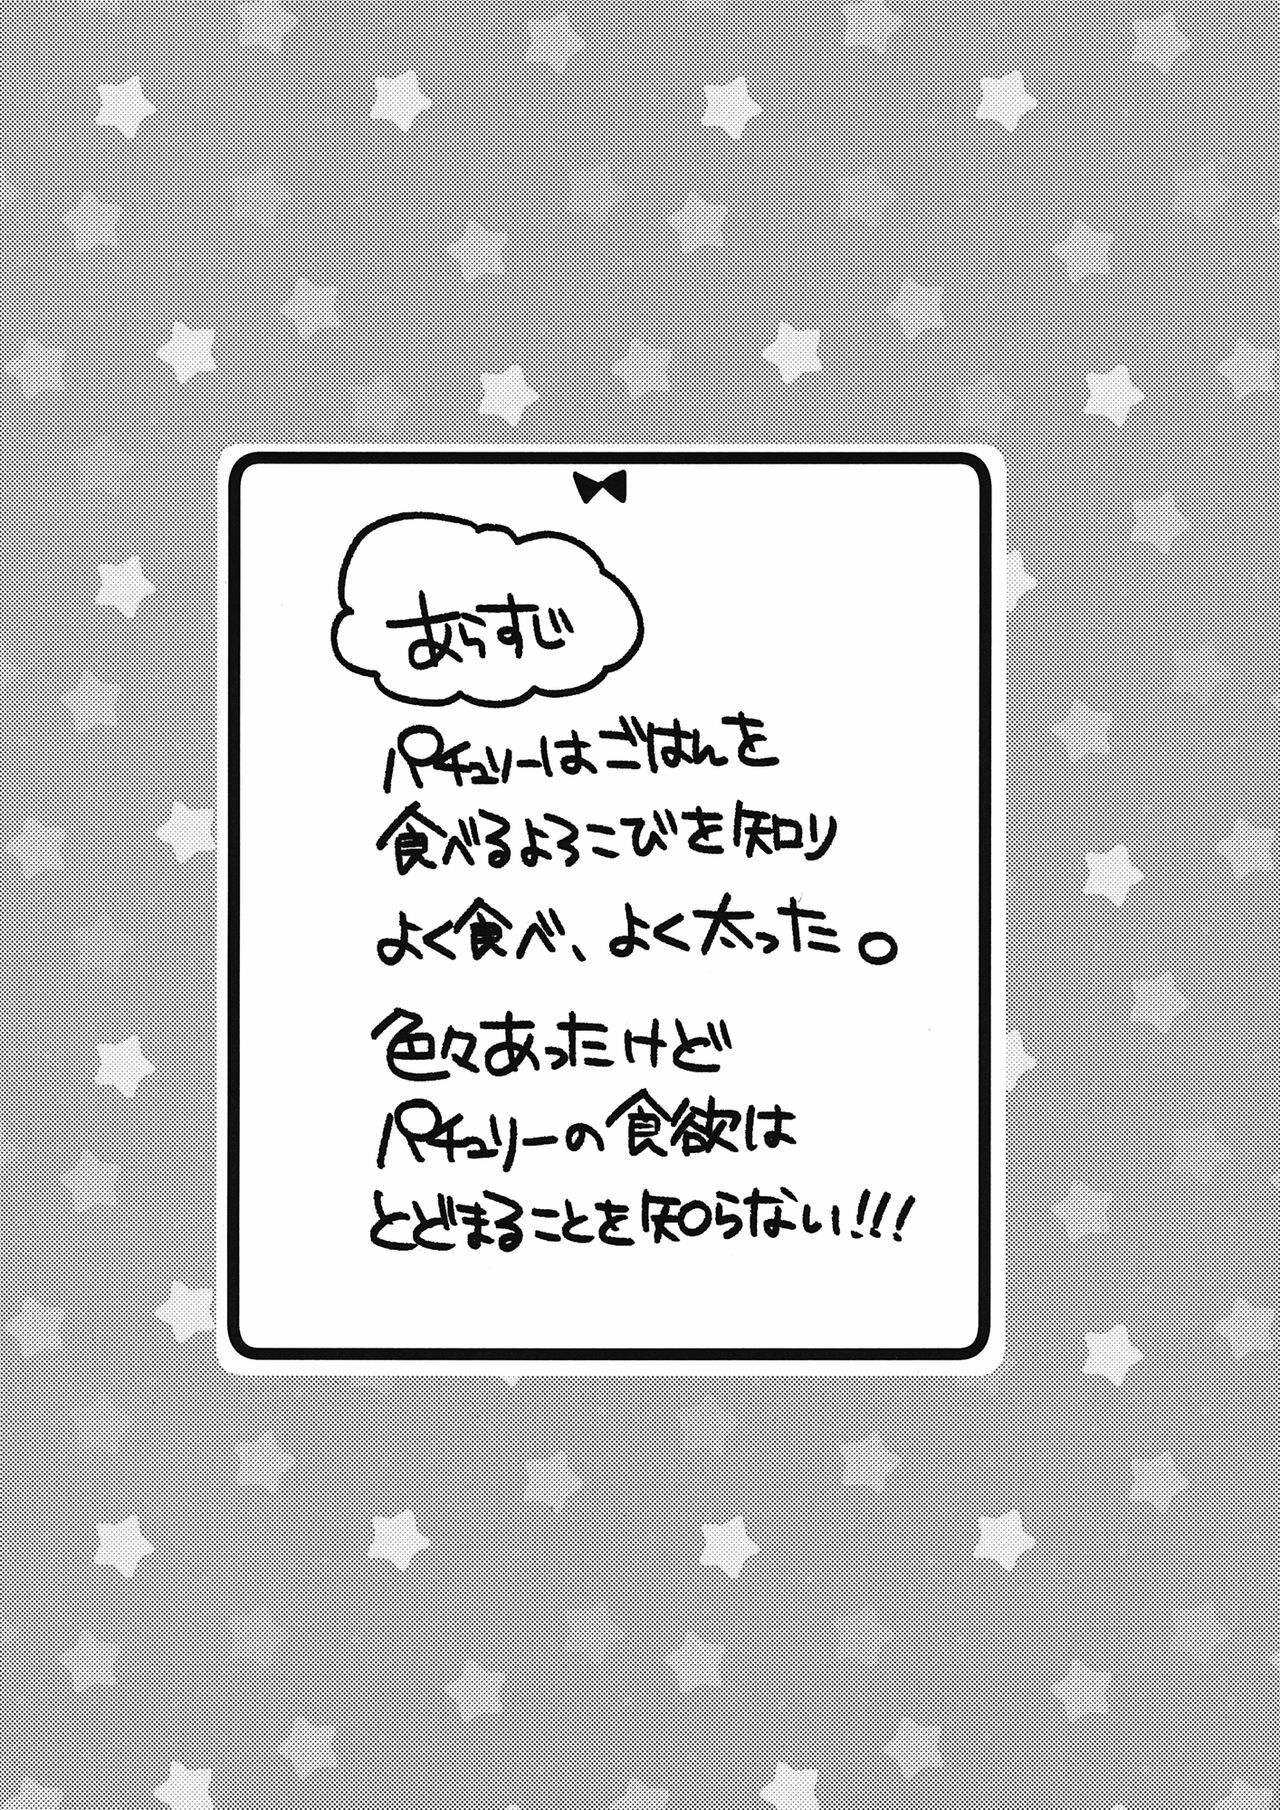 あらすじ
パチュリーはごはんを
食べるよろこびを知り
よく食べ、よく太った。
色々あったけど
パチュリーの食欲は
とどまることを知らない!!!